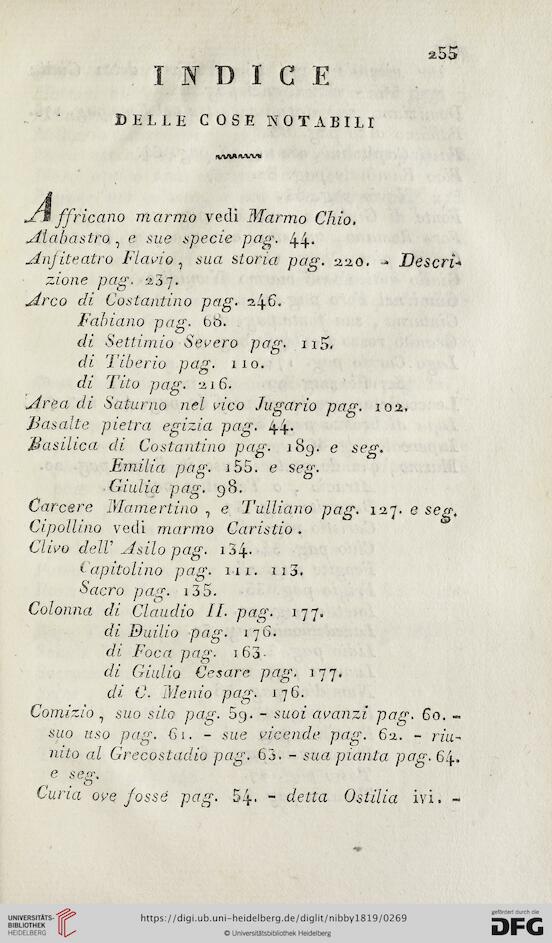 255
INDICE
DELLE COSE NOTABILI
Affricano marmo vedi Marmo Chio.
Alabastro, e sue specie pag. 44.
Anfiteatro Flavio, sua storia pag. 220. - Descri-
zione pag. 237.
Arco di Costantino pag. 246.
Fabiano pag. 68.
di Settimio Severo pag. 115.
di Tiberio pag. 110.
di Tito pag. 216.
Area di Saturno nel vico Jugario pag. 102.
Basalte pietra egizia pag. 44.
Basilica di Costantino pag. 189. e seg.
Emilia pag. 155. e seg.
Giulia pag. 98.
Carcere Mamertino, e Tulliano pag. 127. e seg.
Cipollino vedi marmo Caristio.
Clivo dell' Asilo pag. 134.
Capitolino pag. 111. 113.
Sacro pag. 135.
Colonna di Claudio II. pag. 177.
di Duilio pag. 176.
di Foca pag. 163.
di Giulio Cesare pag. 177.
di C. Menio pag. 176.
Comizio, suo sito pag. 59. - suoi avanzi pag. 60. -
suo uso pag. 61. - sue vicende pag. 62. - riu-
nito al Grecostadio pag. 63. - sua pianta pag. 64.
e seg.
Curia ove fosse pag. 54. - detta Ostilia ivi. -
UNIVERSITÄTS-
BIBLIOTHEK
HEIDELBERG
https://digi.ub.uni-heidelberg.de/diglit/nibby1819/0269
© Universitätsbibliothek Heidelberg
gefördert durch die
DFG